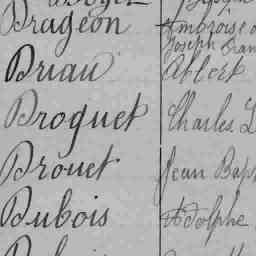 Drageon Ambroise
Joseph
Driau Albert
Droguet Charles L
Drouet Jean Bap
Dubois Adolphe